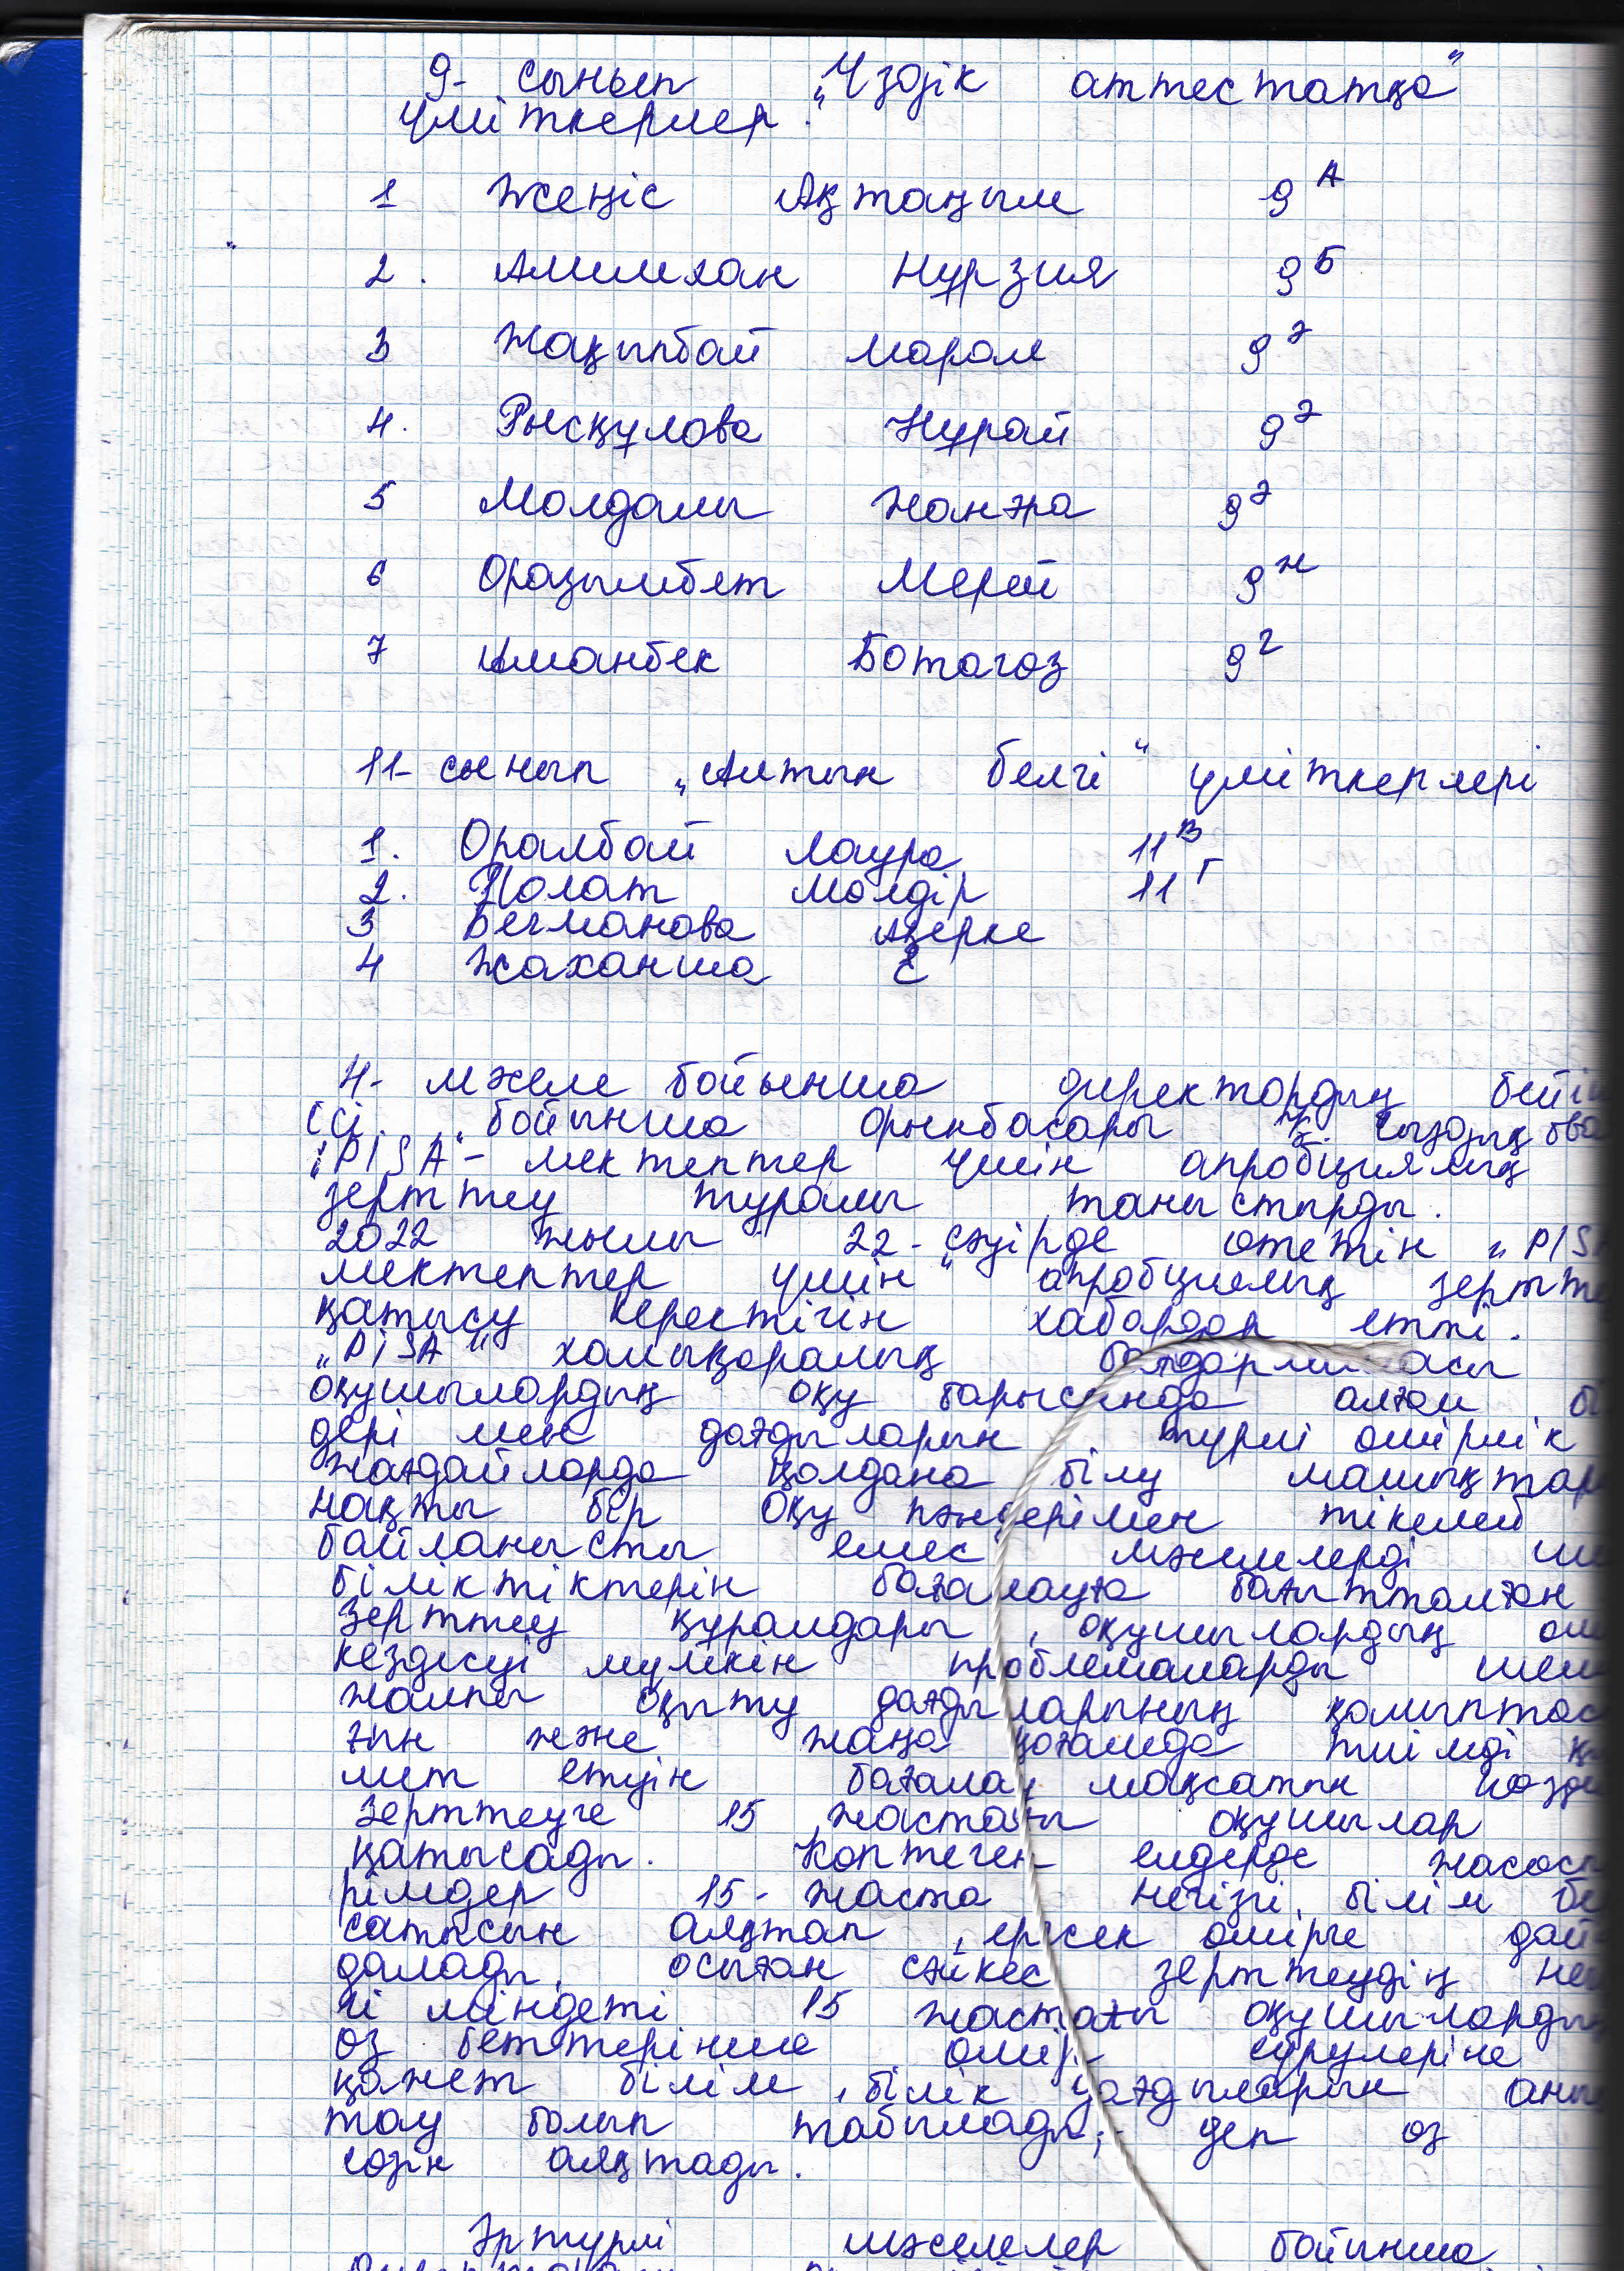 9- сынып „Үздік аттестатқа"
үміткерлер.
1 Жеңіс Ақтаңым 9 А
2. Әлимхан Нұрзия 9 Б
3 Жақыпбай Марал 9 Ә
4. Рысқулова Нұрай 9 Ә
5 Молдалы Жанэра 9 Ә
6 Оразымбет Мерей 9 Ж
7 Иманбек Ботагөз 9 Г
11- сынып „Алтын белгі" үміткерлері
1. Оралбай Лаура 11 В
2. Полат Мөлдір 11 Г
3 Бегманова Ақерке
4 Жаханша Е
4- мәселе бойынша директордың бейін
ісі бойынша орынбасары
„PISA"- мектептер үшін апробциялық
зерттеу туралы таныстырды.
2022 жылы 22-сәуірде өтетін „PISA
мектептер үшін" апробциялық зертте
қатысу керектігін хабардар етті.
„PISA" халықаралық бағдарламасы
оқушылардың оқу барысында алған бі
дері мен дағдыларын түрлі өмірлік
жағдайларда қолдана білу машықтар
нақты бір оқу пәндерімен тікелей
байланысты емес мәселелерді ше
біліктіктерін бағалауға бағытталған
Зерттеу құралдары, оқушылардың өм
кездесуі мүмкін проблемаларды шеш
жалпы оқыту дағдыларының қалыптас
ғын және жаңа қоғамда тиімді қы
мет етуін бағалау мақсатын көзде
Зерттеуге 15 жастағы оқушылар
қатысады. Көптеген елдерде жасөсп
рімдер 15- жаста негізгі білім бе
сатысын аяқтап, ересек өмірге дай
далады, осыған сәйкес зерттеудің нег
гі міндеті 15 жастағы оқушыларды
өз беттерінше өмір сүрулеріне
қажет білім, білік дағдыларын анық
тау болып табылады, - деп өз
сөзін аяқтады.
Әртүрлі мәселелер бойынша